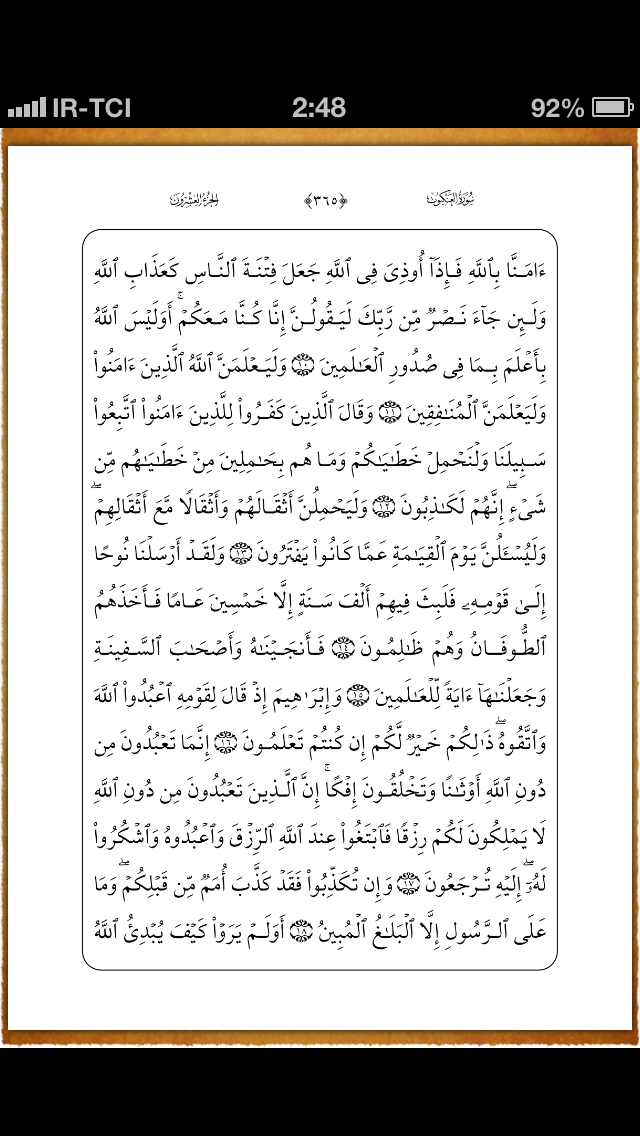 IR-TCI 2:48 92%
سُورَةُ العَنكَبُوت ﴿٣٦٥﴾ الجُزءُ العِشرُون
ءَامَنَّا بِٱللَّهِ فَإِذَآ أُوذِىَ فِى ٱللَّهِ جَعَلَ فِتۡنَةَ ٱلنَّاسِ كَعَذَابِ ٱللَّهِ
وَلَئِن جَآءَ نَصۡرٌ مِّن رَّبِّكَ لَيَقُولُنَّ إِنَّا كُنَّا مَعَكُمۡۚ أَوَلَيۡسَ ٱللَّهُ
بِأَعۡلَمَ بِمَا فِى صُدُورِ ٱلۡعَـٰلَمِينَ ١٠ وَلَيَعۡلَمَنَّ ٱللَّهُ ٱلَّذِينَ ءَامَنُواْ
وَلَيَعۡلَمَنَّ ٱلۡمُنَـٰفِقِينَ ١١ وَقَالَ ٱلَّذِينَ كَفَرُواْ لِلَّذِينَ ءَامَنُواْ ٱتَّبِعُواْ
سَبِيلَنَا وَلۡنَحۡمِلۡ خَطَـٰيَـٰكُمۡ وَمَا هُم بِحَـٰمِلِينَ مِنۡ خَطَـٰيَـٰهُم مِّن
شَىۡءٍۖ إِنَّهُمۡ لَكَـٰذِبُونَ ١٢ وَلَيَحۡمِلُنَّ أَثۡقَالَهُمۡ وَأَثۡقَالًا مَّعَ أَثۡقَالِهِمۡۖ
وَلَيُسۡـَٔلُنَّ يَوۡمَ ٱلۡقِيَـٰمَةِ عَمَّا كَانُواْ يَفۡتَرُونَ ١٣ وَلَقَدۡ أَرۡسَلۡنَا نُوحًا
إِلَىٰ قَوۡمِهِۦ فَلَبِثَ فِيهِمۡ أَلۡفَ سَنَةٍ إِلَّا خَمۡسِينَ عَامًا فَأَخَذَهُمُ
ٱلطُّوفَانُ وَهُمۡ ظَـٰلِمُونَ ١٤ فَأَنجَيۡنَـٰهُ وَأَصۡحَـٰبَ ٱلسَّفِينَةِ
وَجَعَلۡنَـٰهَآ ءَايَةً لِّلۡعَـٰلَمِينَ ١٥ وَإِبۡرَٰهِيمَ إِذۡ قَالَ لِقَوۡمِهِ ٱعۡبُدُواْ ٱللَّهَ
وَٱتَّقُوهُۖ ذَٰلِكُمۡ خَيۡرٌ لَّكُمۡ إِن كُنتُمۡ تَعۡلَمُونَ ١٦ إِنَّمَا تَعۡبُدُونَ مِن
دُونِ ٱللَّهِ أَوۡثَـٰنًا وَتَخۡلُقُونَ إِفۡكًاۚ إِنَّ ٱلَّذِينَ تَعۡبُدُونَ مِن دُونِ ٱللَّهِ
لَا يَمۡلِكُونَ لَكُمۡ رِزۡقًا فَٱبۡتَغُواْ عِندَ ٱللَّهِ ٱلرِّزۡقَ وَٱعۡبُدُوهُ وَٱشۡكُرُواْ
لَهُۥٓۖ إِلَيۡهِ تُرۡجَعُونَ ١٧ وَإِن تُكَذِّبُواْ فَقَدۡ كَذَّبَ أُمَمٌ مِّن قَبۡلِكُمۡۖ وَمَا
عَلَى ٱلرَّسُولِ إِلَّا ٱلۡبَلَـٰغُ ٱلۡمُبِينُ ١٨ أَوَلَمۡ يَرَوۡاْ كَيۡفَ يُبۡدِئُ ٱللَّهُ